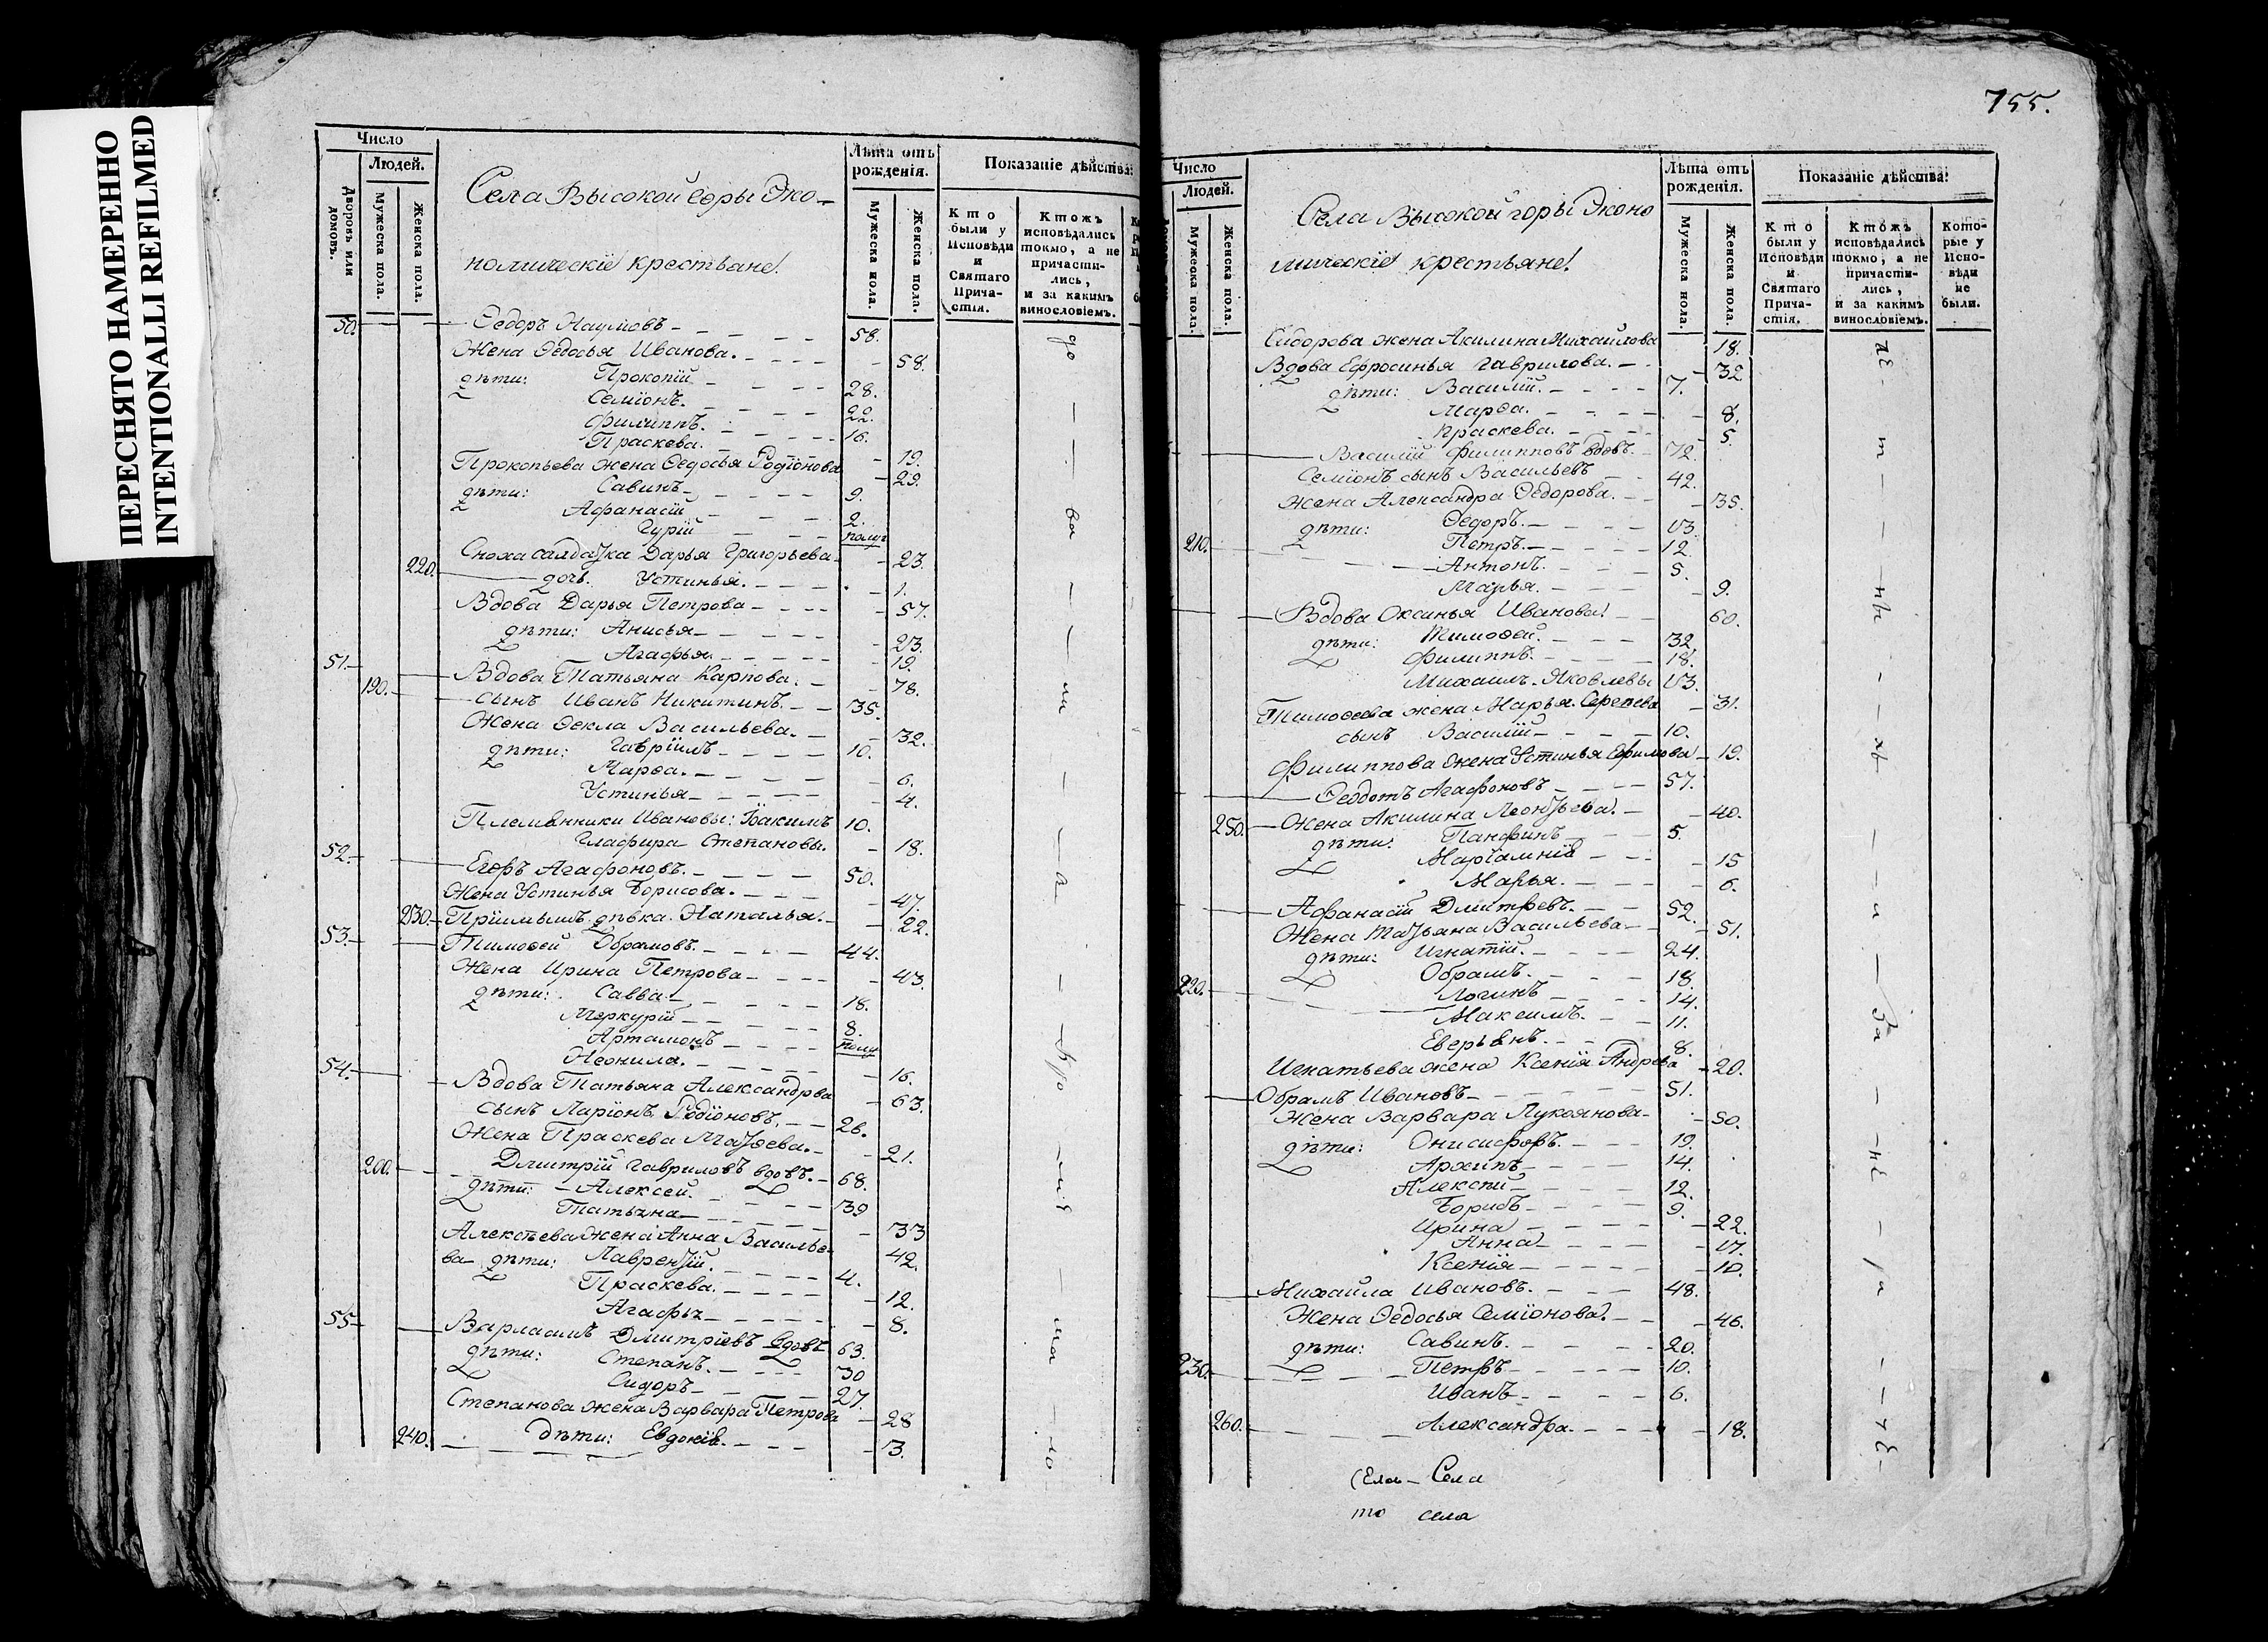 ПЕРЕСНЯТО НАМЕРЕННО
INTENTIONALLI REFILMED
Число
Людей.
Дворовъ или домовъ.
Мужеска пола.
Женска пола.
Села Высокой Горы Эко-
номическіе крестьяне.
Лѣта отъ рожденія.
Мужеска пола.
Женска пола.
Показаніе дѣйства:
Кто были у Исповѣди и Святаго Прича- стія.
Ктожъ исповѣдались токмо, а не причасти- лись, и за какимъ винословіемъ.
50. Ѳедоръ Наумовъ 58.
Жена Ѳедосья Иванова. 58.
дѣти: Прокопій 28.
Семіонъ. 22.
Филиппъ. 16.
Праскева. 19.
Прокопьева жена Ѳедосья Родіонова 29.
дѣти: Савинъ 9.
Афанасій 2.
Гурій полуг
Сноха салдатка Дарья Григорьева 23.
220. дочь Устинья. 1.
Вдова Дарья Петрова 57.
дѣти: Анисья 23.
Агафья. 19.
51. Вдова Татьяна Карпова. 78.
190. сынъ Иванъ Никитинъ. 35.
Жена Ѳекла Васильева. 32.
дѣти: Гавріилъ 10.
Марѳа. 6.
Устинья 4.
Племянники Ивановы: Іоакимъ 10.
Глафира Степановы. 18.
52. Егоръ Агафоновъ. 50.
Жена Устинья Борисова. 47.
230. Пріимышъ дѣвка Наталья. 22.
53. Тимоѳей Обрамовъ. 44.
Жена Ирина Петрова 43.
дѣти: Савва 18.
Меркурій 8.
Артамонъ полуг
Неонила. 16.
54. Вдова Татьяна Александрва 63.
сынъ Ларіонъ Родіоновъ. 26.
Жена Праскева Матѳеева. 21.
200. Дмитрій Гавриловъ вдовъ. 68.
дѣти: Алексей. 39
Татьяна 33
Алексѣева жена Анна Василье- 42.
ва дѣти: Лаврентій. 4.
Праскева. 12.
Агафья 8.
55. Варлаамъ Дмитріевъ вдовъ 63.
дѣти: Степанъ. 30
Сидоръ 27.
Степанова жена Варвара Петрова 28
240. дѣти: Евдокія. 3.
755.
Число
Людей.
Мужеска пола.
Женска пола.
Села Высокой горы Эконо
мическіе крестьяне.
Лѣта отъ рожденія.
Мужеска пола.
Женска пола.
Показаніе дѣйства:
Кто были у Исповѣди и Святаго Прича- стія.
Ктожъ исповѣдались токмо, а не причасти- лись, и за какимъ винословіемъ.
Кото- рые у Испо- вѣди не были.
Сидорова жена Акилина Михайлова 18.
Вдова Ефросинья Гаврилова. 32
дѣти: Василій. 7.
Марѳа. 8.
Праскева. 5.
Василій Филипповъ вдовъ. 72.
Семіонъ сынъ Васильевъ 42.
Жена Александра Ѳедорова. 35.
дѣти: Ѳедоръ. 13.
210. Петръ. 12.
Антонъ. 5.
Марья. 9.
Вдова Оксинья Иванова. 60.
дѣти: Тимоѳей. 32
Филиппъ. 18.
Михаилъ Яковлевы 13.
Тимоѳеева жена Марья Сергеева 31.
сынъ Василій 10.
Филиппова жена Устинья Ефимова 19.
Ѳедотъ Агафоновъ 57.
250. Жена Акилина Леонтьева. 40.
дѣти: Панфилъ 5.
Маріамнія 15
Марья. 6.
Афанасій Дмитревъ. 52.
Жена Татьяна Васильева 51.
дѣти: Игнатій. 24.
Обрамъ. 18.
220. Логинъ 14.
Максимъ. 11.
Еверьянъ. 8.
Игнатьева жена Ксенія Андрева 20.
Обрамъ Ивановъ 51.
Жена Варвара Лукоянова 50.
дѣти: Онисифоръ. 19.
Архипъ 14.
Алексѣй 12.
Борисъ 9.
Ирина 22.
Анна 17.
Ксенія 10.
Михайла Ивановъ. 48.
Жена Ѳедосья Семіонова. 46.
дѣти: Савинъ. 20.
230. Петръ 10.
Иванъ 6.
260. Александра. 18.
Села
то села